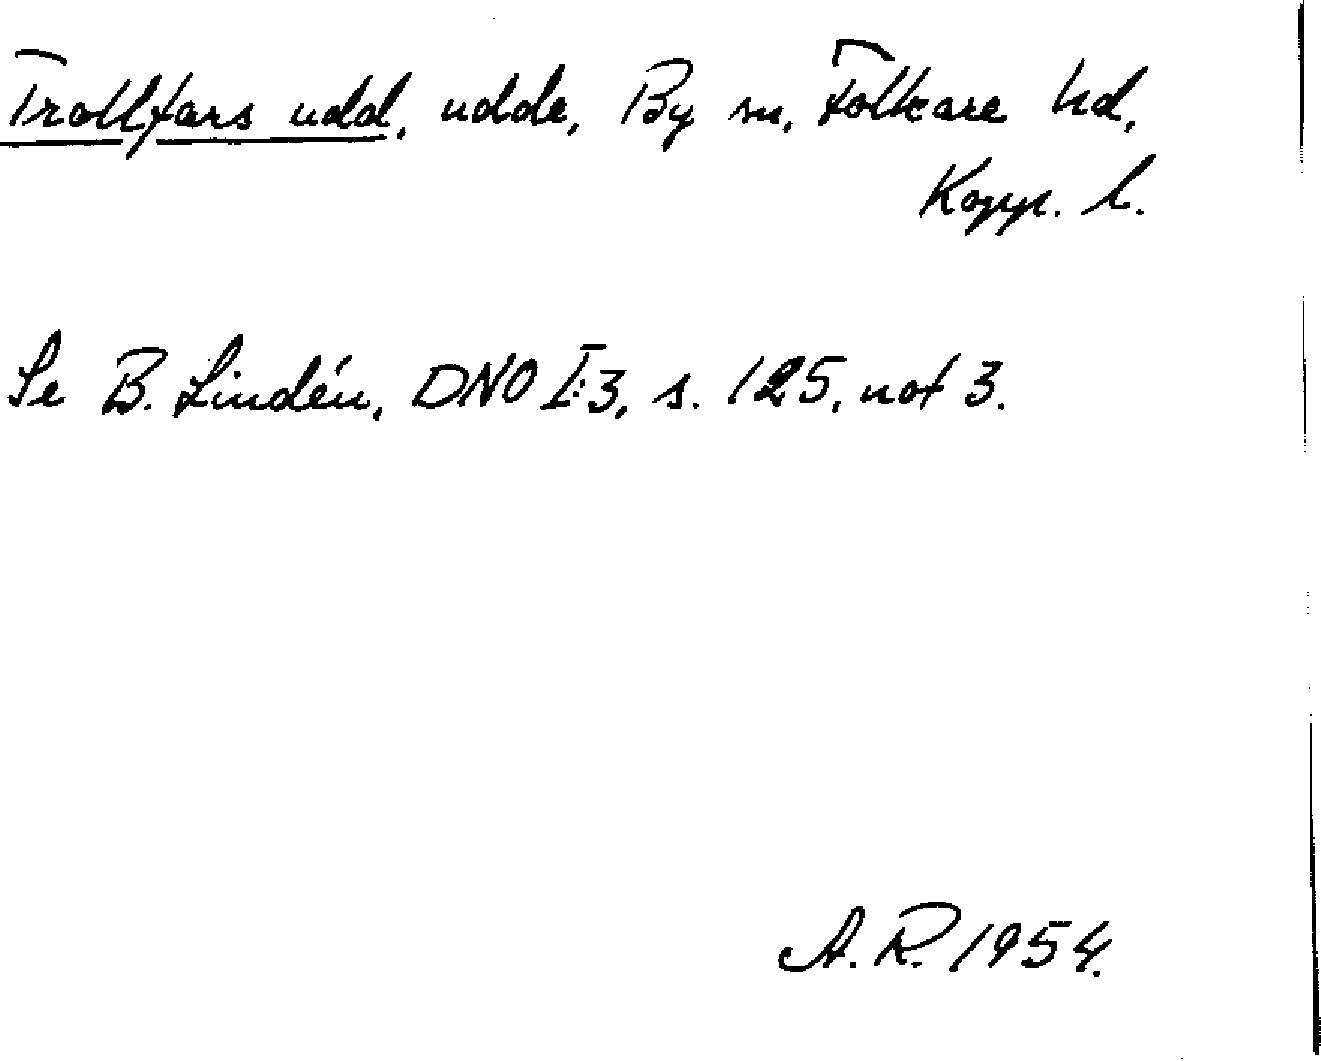 Trollfars udd, udde, By sn, Folkare hd,
Kopp. l.
Se B. Lindén, DNO I:3, s. 125, not 3.
A. R. 1954.